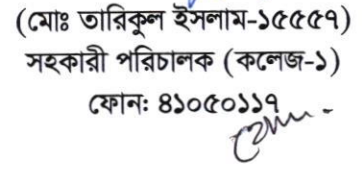 (মোঃ তারিকুল ইসলাম-১৫৫৫৭)
সহকারী পরিচালক (কলেজ-১)
ফোনঃ ৪১০৫০১১৭